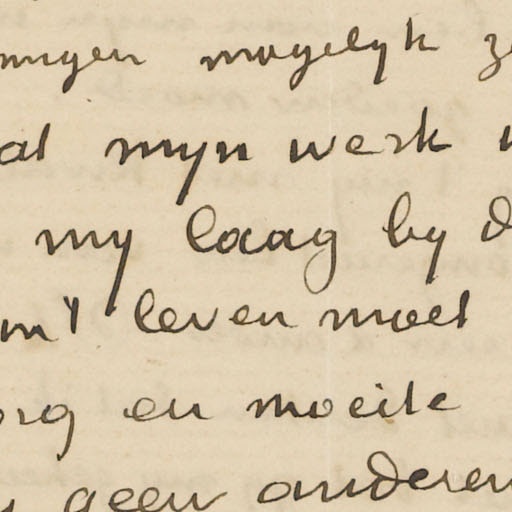 mogelyk
myn werk
my laag by
leven moet
en moeite
geen anderen